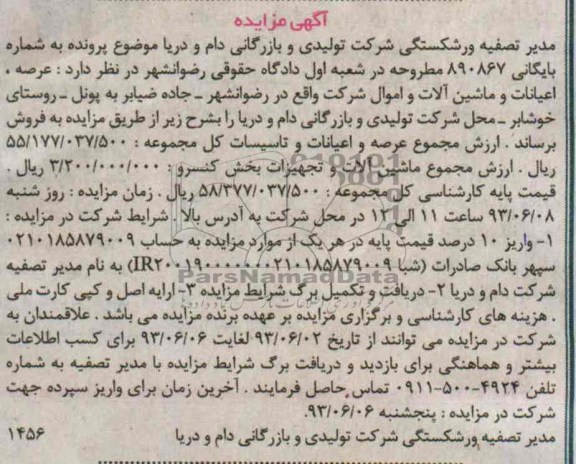 آگهی مزایده
مدیر تصفیه ورشکستگی شرکت تولیدی و بازرگانی دام و دریا موضوع پرونده به شماره
بایگانی ۸۹۰۸۶۷ مطروحه در شعبه اول دادگاه حقوقی رضوانشهر در نظر دارد : عرصه ،
اعیانات و ماشین آلات و اموال شرکت واقع در رضوانشهر ـ جاده ضیابر به پونل ـ روستای
خوشابر ـ محل شرکت تولیدی و بازرگانی دام و دریا را بشرح زیر از طریق مزایده به فروش
برساند . ارزش مجموع عرصه و اعیانات و تاسیسات کل مجموعه : ۵۵/۱۷۷/۰۳۷/۵۰۰
ریال . ارزش مجموع ماشین آلات و تجهیزات بخش کنسرو : ۳/۲۰۰/۰۰۰/۰۰۰ ریال .
قیمت پایه کارشناسی کل مجموعه : ۵۸/۳۷۷/۰۳۷/۵۰۰ ریال . زمان مزایده : روز شنبه
۹۳/۰۶/۰۸ ساعت ۱۱ الی ۱۲ در محل شرکت به آدرس بالا . شرایط شرکت در مزایده :
۱- واریز ۱۰ درصد قیمت پایه در هر یک از موارد مزایده به حساب ۰۲۱۰۱۸۵۸۷۹۰۰۹
سپهر بانک صادرات (شبا IR۲۰۰۱۹۰۰۰۰۰۰۰۲۱۰۱۸۵۸۷۹۰۰۹) به نام مدیر تصفیه
شرکت دام و دریا ۲- دریافت و تکمیل برگ شرایط مزایده ۳- ارایه اصل و کپی کارت ملی
. هزینه های کارشناسی و برگزاری مزایده بر عهده برنده مزایده می باشد . علاقمندان به
شرکت در مزایده می توانند از تاریخ ۹۳/۰۶/۰۲ لغایت ۹۳/۰۶/۰۶ برای کسب اطلاعات
بیشتر و هماهنگی برای بازدید و دریافت برگ شرایط مزایده با مدیر تصفیه به شماره
تلفن ۴۹۲۴-۵۰۰-۰۹۱۱ تماس حاصل فرمایند . آخرین زمان برای واریز سپرده جهت
شرکت در مزایده : پنجشنبه ۹۳/۰۶/۰۶.
مدیر تصفیه ورشکستگی شرکت تولیدی و بازرگانی دام و دریا ۱۴۵۶
ParsNamadData